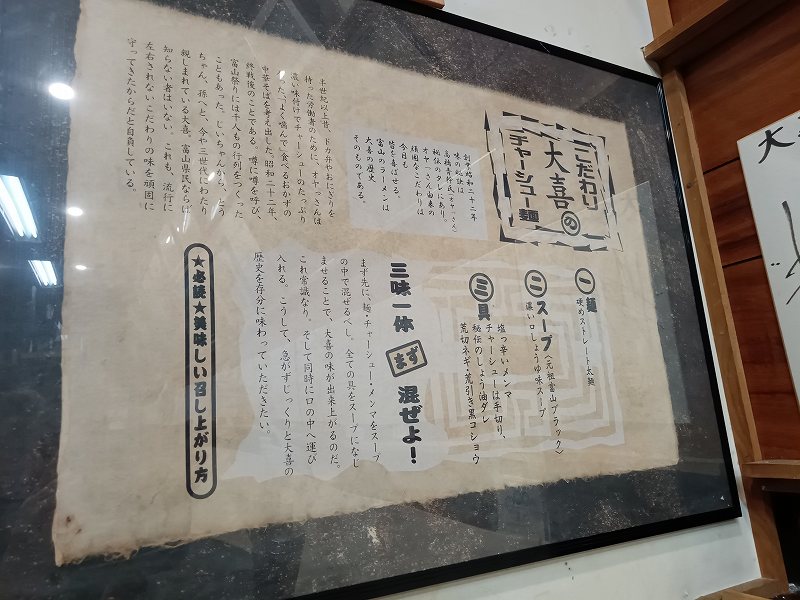 こだわり
大喜の
チャーシュー麺
創業昭和二十二年
味の秘訣は
秘伝のタレにあり。
オヤっさん由来の
頑固なこだわりは
今日も
皆を喜ばせる。
富山のラーメンは
大喜の歴史
そのものである。
半世紀以上昔、ドカ弁やおにぎりを
持った労働者のために、オヤっさんは
濃い味付けでチャーシューのたっぷり
入った、よく噛んで食べるおかずの
中華そばを考え出した。昭和二十二年、
終戦後のことである。噂に噂を呼び、
富山祭りには千人もの行列をつくった
こともあった。じいちゃんから、とう
ちゃん、孫へと、今や三世代にわたり
親しまれている大喜。富山県民ならば
知らない者はいない。これも、流行に
左右されないこだわりの味を頑固に
守ってきたからだと自負している。
一 麺
硬めストレート太麺
二 スープ〈元祖富山ブラック〉
濃い口しょうゆ味スープ
三 具
塩っ辛いメンマ
チャーシューは手切り、
秘伝のしょう油ダレ
荒切ネギ・荒引き黒コショウ
三味一体 まず 混ぜよ!
まず先に、麺・チャーシュー・メンマをスープ
の中で混ぜるべし。全ての具をスープになじ
ませることで、大喜の味が出来上がるのだ。
これ常識なり。そして同時に口の中へ運び
入れる。こうして、急がずじっくりと大喜の
歴史を存分に味わっていただきたい。
★必読★美味しい召し上がり方
大